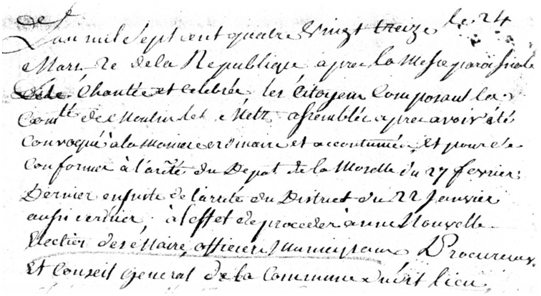 L'an mil Sept cent quatre Vingt treize le 24
Mars 2e de la Republique apres la Messe paroissiale
Chantée et Celebrée les Citoyens Composant la
Comté de Moulin les Metz assemblée apres avoir été
Convoqué a la maniere ordinaire et accoutumée et pour se
Conformé à l'arrêté du Depot de la Moselle du 27 fevrier
Dernier ensuite de l'arrêté du District du 22 Janvier
aussi dernier à l'effet de proceder a une Nouvelle
Election des Maire, officiers Municipaux Procureur
Et Conseil General de la Commune dudit lieu